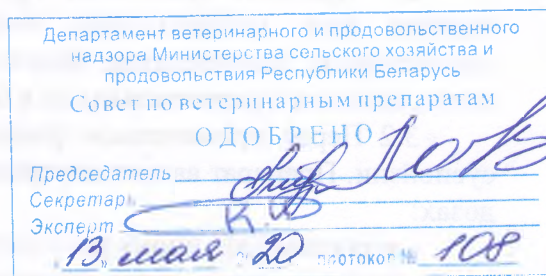 Департамент ветеринарного и продовольственного
надзора Министерства сельского хозяйства и
продовольствия Республики Беларусь
Совет по ветеринарным препаратам
ОДОБРЕНО
Председатель
Секретарь
Эксперт
"13" мая 20 протокол № 108
дозах